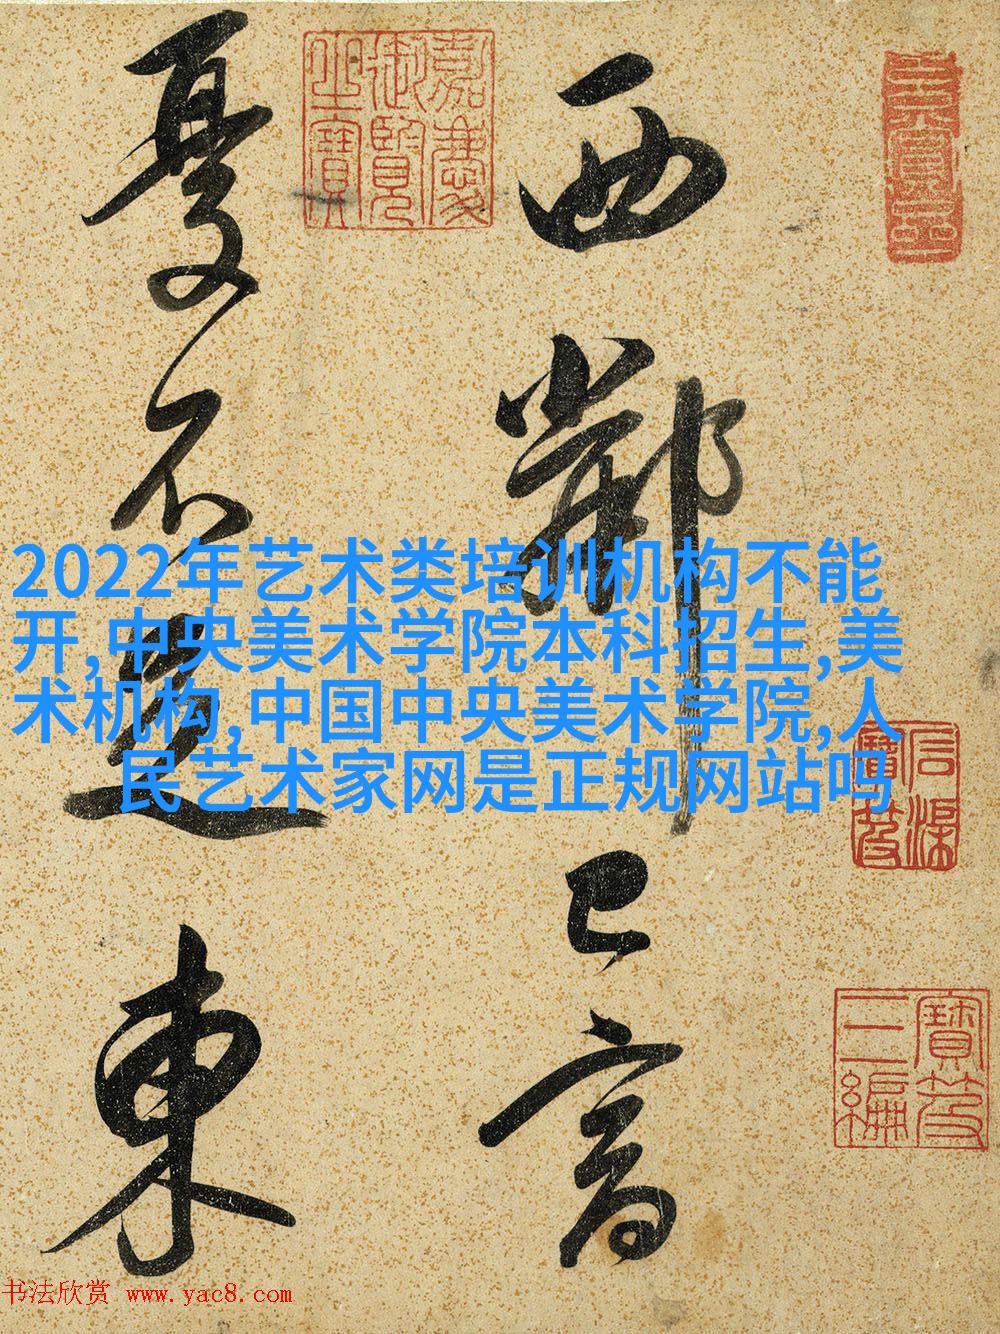 嘉慶御覽之寶
西鄰已富
憂不足東
2022年艺术类培训机构不能
开,中央美术学院本科招生,美
术机构,中国中央美术学院,人
民艺术家网是正规网站吗
寶笈三編
书法欣赏 www.yac8.com